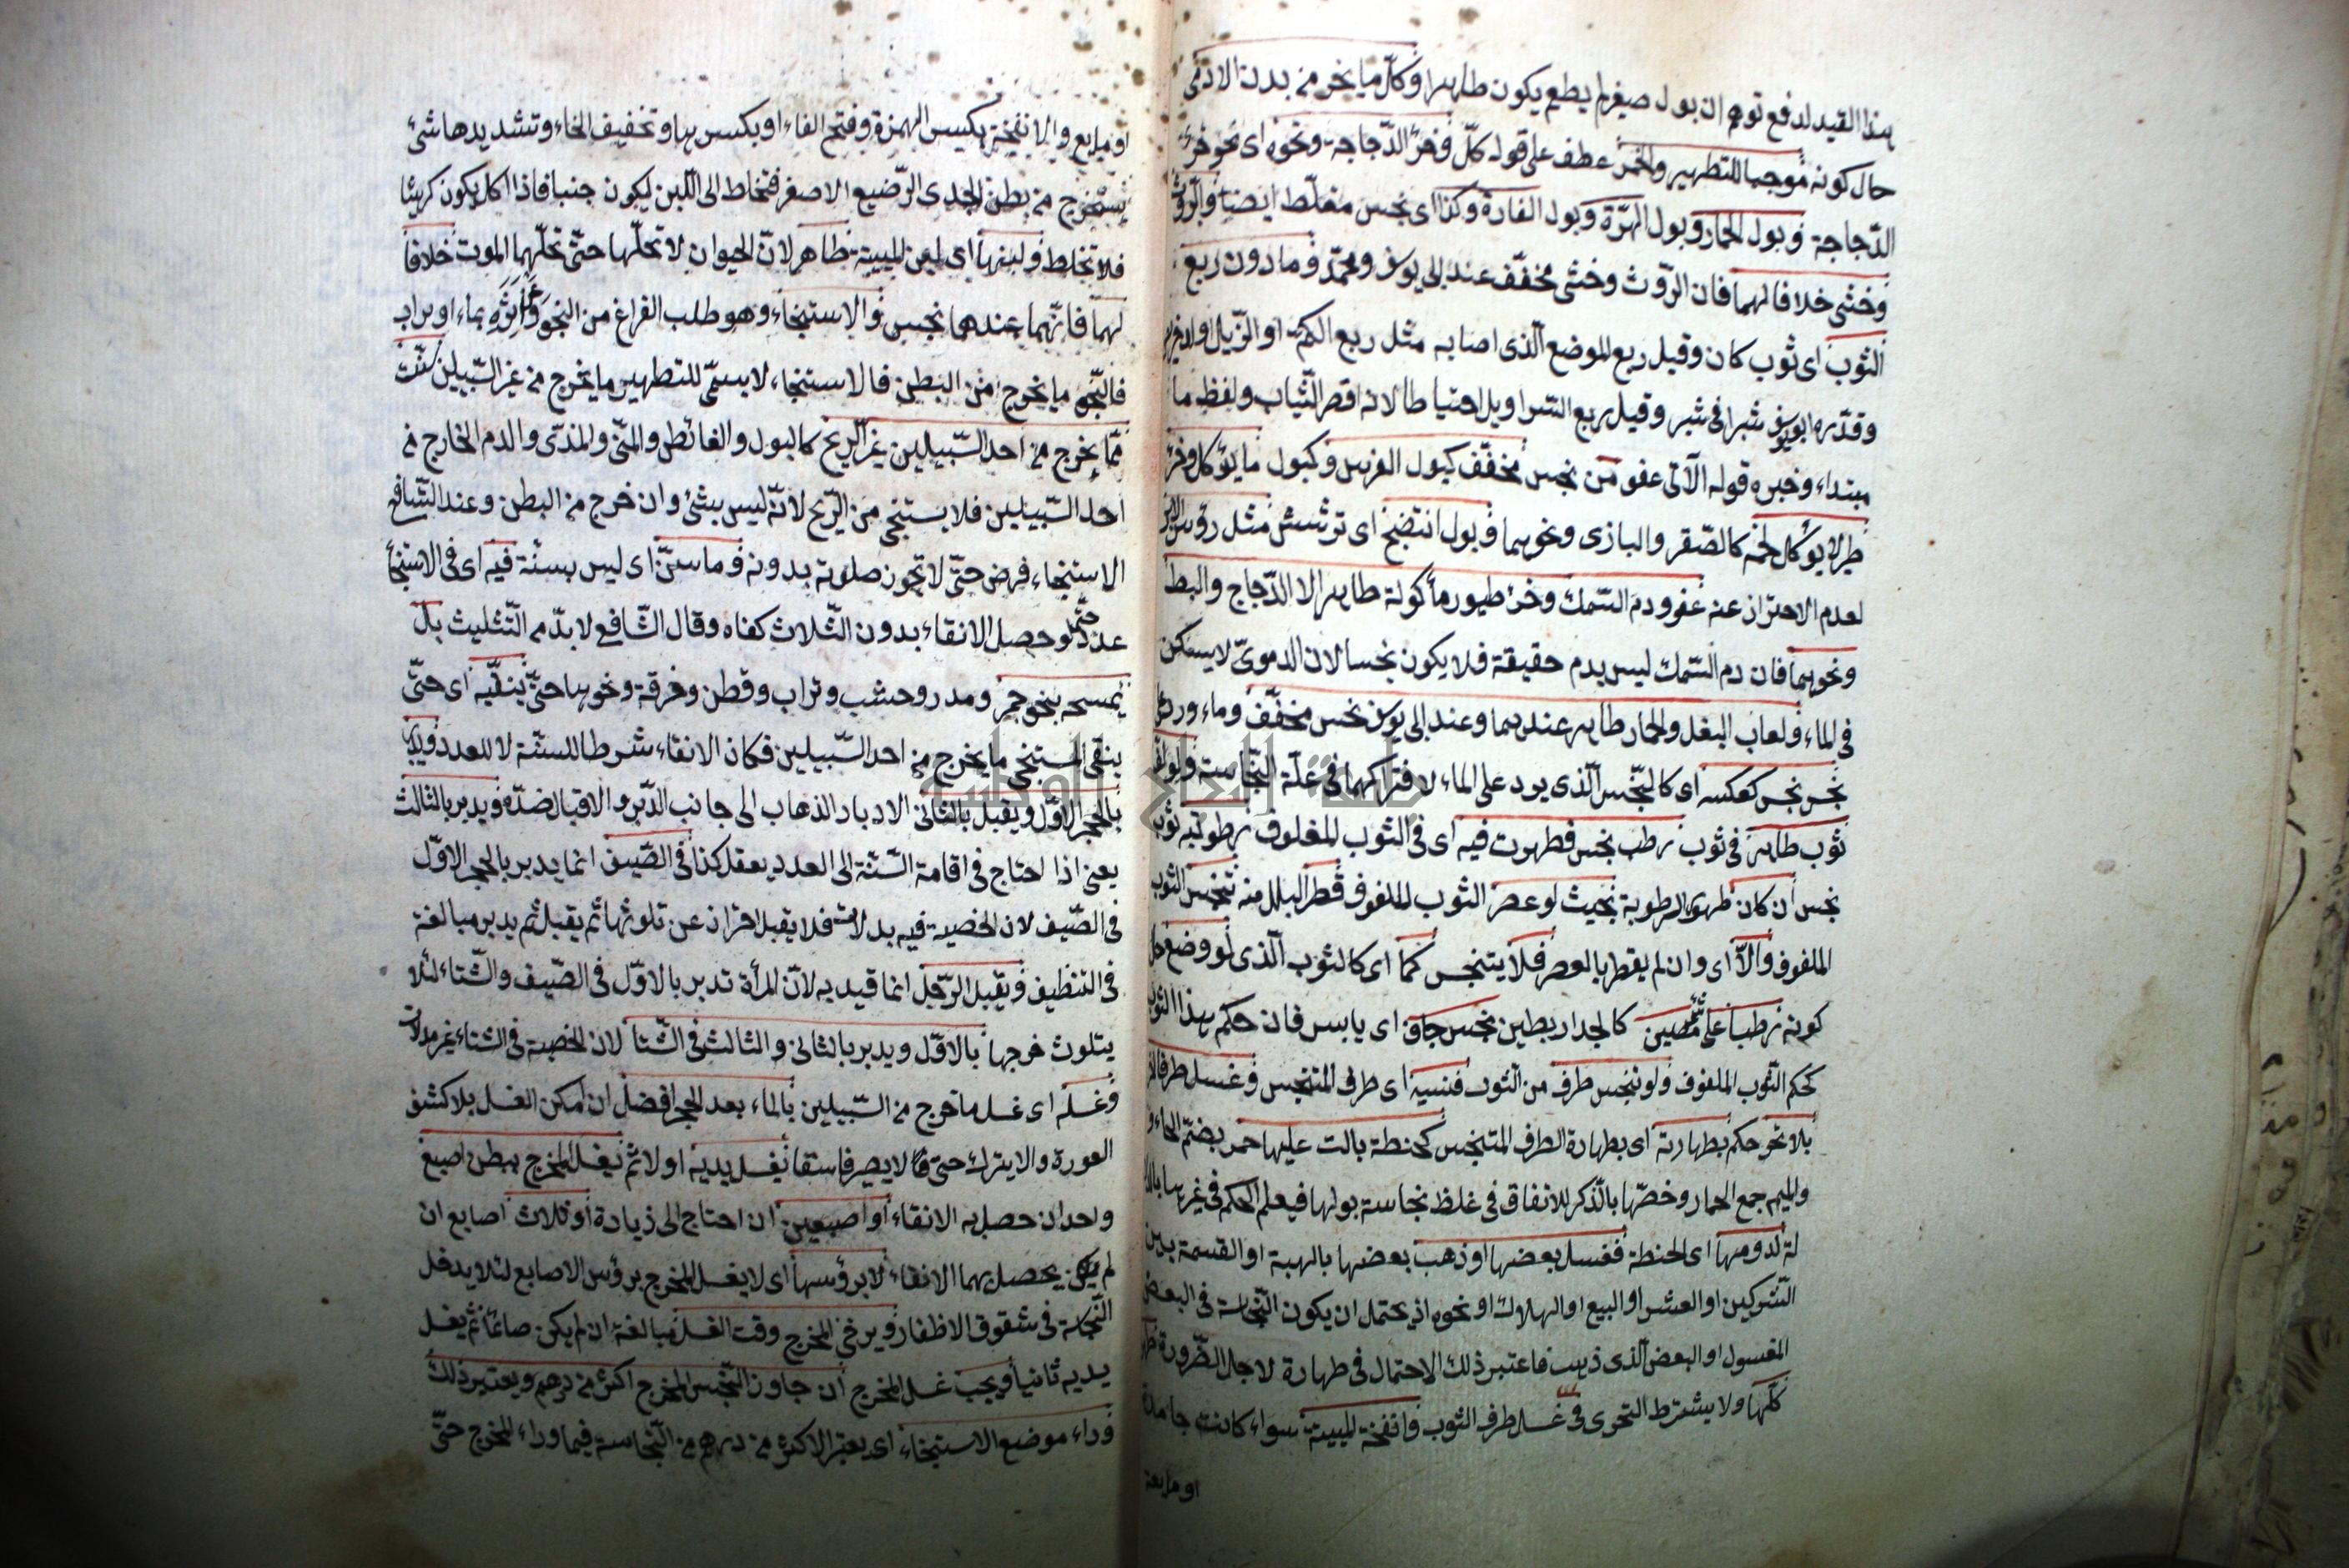 بهذا القيد لدفع توهم ان بول صغير لم يطعم يكون طاهرا وكل ما يخرج من بدن الادمى
حال كونه موجبا للتطهير والخمر عطف على قوله كلّ وخرء الدّجاجة ونحوه اى نحو خرء
الدّجاجة وبول الحمار وبول الهرّة وبول الفارة وكذا اى نجس مغلّظ ايضا والرّوث
وخثى خلافا لهما فان الرّوث وخثى مخفّف عند ابى يوسف ومحمّد وما دون ربع
الثوب اى ثوب كان وقيل ربع الموضع الّذى اصابه مثل ربع الكمّ او الذّيل او
وقدّره ابو يوسف شبرا فى شبر وقيل ربع السّراويل احتياطا لانه اقصر الثّياب ولفظ ما
مبتداء وخبره قوله الآتى عفو من نجس مخفّف كبول الفرس وكبول ما يؤكل وخرء
طير لا يؤكل لحمه كالصّقر والبازى ونحوهما وبول انتضح اى ترشش مثل رؤس الابر
لعدم الاحتراز عنه عفو ودم السّمك وخرء طيور مأكولة طاهر الا الدّجاج والبط
ونحوهما فان دم السّمك ليس بدم حقيقة فلا يكون نجسا لان الدموىّ لا يسكن
فى الماء ولعاب البغل والحمار طاهر عندهما وعند ابى يوسف نجس مخفّف وماء ورد على
نجس نجس كعكسه اى كالنّجس الّذى يرد على الماء لاشتراكهما فى علّة النّجاسة ولو لف
ثوب طاهر فى ثوب رطب نجس فظهرت فيه اى فى الثوب الملفوف رطوبة ثوب
نجس ان كان ظهور الرطوبة بحيث لو عصر الثوب الملفوف قطر البلل منه تنجس الثوب
الملفوف والّا اى وان لم يقطر بالعصر فلا يتنجس كما اى كالثوب الّذى لو وضع حال
كونه رطبا على مطين كالجدار بطين نجس جاف اى يابس فان حكم هذا الثوب
كحكم الثّوب الملفوف ولو تنجس طرف من الثوب فنسيه اى طرف المتنجس وغسل طرفا
بلا تحر حكم بطهارته اى بطهارة الطرف المتنجس كحنطة بالت عليها حمر بضمّ الحاء و
والميم جمع الحمار وخصّها بالذّكر للاتفاق فى غلظ نجاسة بولها فيعلم الحكم فى غيرها
لة لدومها اى الحنطة فغسل بعضها او ذهب بعضها بالهبة او القسمة بين
الشّركين او العشر او البيع او الهلاك او نحوه اذ يحتمل ان يكون النّجاسة فى البعض
المغسول او البعض الّذى ذهب فاعتبر ذلك الاحتمال فى طهارة لاجل الضّرورة
كلّها ولا يشترط التحرى فى غسل طرف الثوب وانفخة الميتة سواء كانت جامدة
او مايعة
او مايع والانفخة بكسر الهمزة وفتح الفاء او بكسرها وتخفيف الحاء وتشديدها شئ
يستخرج من بطن الجدى الرّضيع الاصغر فتخاط الى اللّبن ليكون جبنا فاذا اكل يكون كريثا
فلا تخلط ولبنها اى لبن الميتة طاهر لانّ الحيوان لا تحلّها حتّى تحلّهما الموت خلافا
لهما فانّهما عندهما نجس والاستنجاء وهو طلب الفراغ من النجو بماء او تراب
فالنّجو ما يخرج من البطن فالاستنجاء لا يسمّى للتطهير ما يخرج من غير السّبيلين سنّت
ممّا يخرج من احد السّبيلين غير الرّيح كالبول والغائط والمنّى والمذّى والدم الخارج من
احد السّبيلين فلا يستنجى من الرّيح لانّه ليس بشئ وان خرج من البطن وعند الشّافعى
الاستنجاء فرض حتّى لا تجوز صلوته بدونه وما سنّ اى ليس بسنّة فيه اى فى الاستنجأ
عدد حتّى لو حصل الانقاء بدون الثّلاث كفاه وقال الشّافعى لا بدّ من التّثليث بل
يمسحه بنحو حجر ومدر وخشب وتراب وقطن وخرقة ونحوها حتّى ينقّيه اى حتّى
ينقى المستنجى ما يخرج من احد السّبيلين فكان الانقاء شرطا للسنّة لا للعدد ويدبر
بالحجر الاوّل ويقبل بالثانى الادبار الذهاب الى جانب الدّبر والاقبال ضدّه ويدبر بالثالث
يعنى اذا احتاج فى اقامة السّنّة الى العدد يفعل كذا فى الصّيف انما يدبر بالحجر الاوّل
فى الصّيف لان الخصية فيه بدلات فلا يقبل احترازا عن تلوثها ثم يقبل ثم يدبر مبالغة
فى التنظيف ويقبل الرّجل انما قيد به لانّ المرأة تدبر بالاوّل فى الصّيف والشّتاء لئلا
يتلوث فرجها بالاوّل ويدبر بالثانى والثالث فى الشّتا لان الخصية فى الشتاء غير مدلات
وغسله اى غسل ما خرج من السّبيلين بالماء بعد الحجر افضل ان امكن الغسل بلا كشف
العورة والا يترك حتى لا يصير فاسقا يغسل يديه اولا ثم يغسل المخرج ببطن اصبع
واحد ان حصل به الانقاء او اصبعين ان احتاج الى زيادة او ثلاث اصابع ان
لم يكن يحصل بهما الانقاء لا برؤسها اى لا يغسل المخرج برؤس الاصابع لئلا يدخل
النّجاسة فى شقوق الاظفار ويرخى المخرج وقت الغسل مبالغة ان لم يكن صائما ثم يغسل
يديه ثانيا ويجب غسل المخرج ان جاوز النّجس المخرج اكثر من درهم ويعتبر ذلك
وراء موضع الاستنجاء اى يعتبر الاكثر من درهم من النّجاسة فيما وراء المخرج حتّى